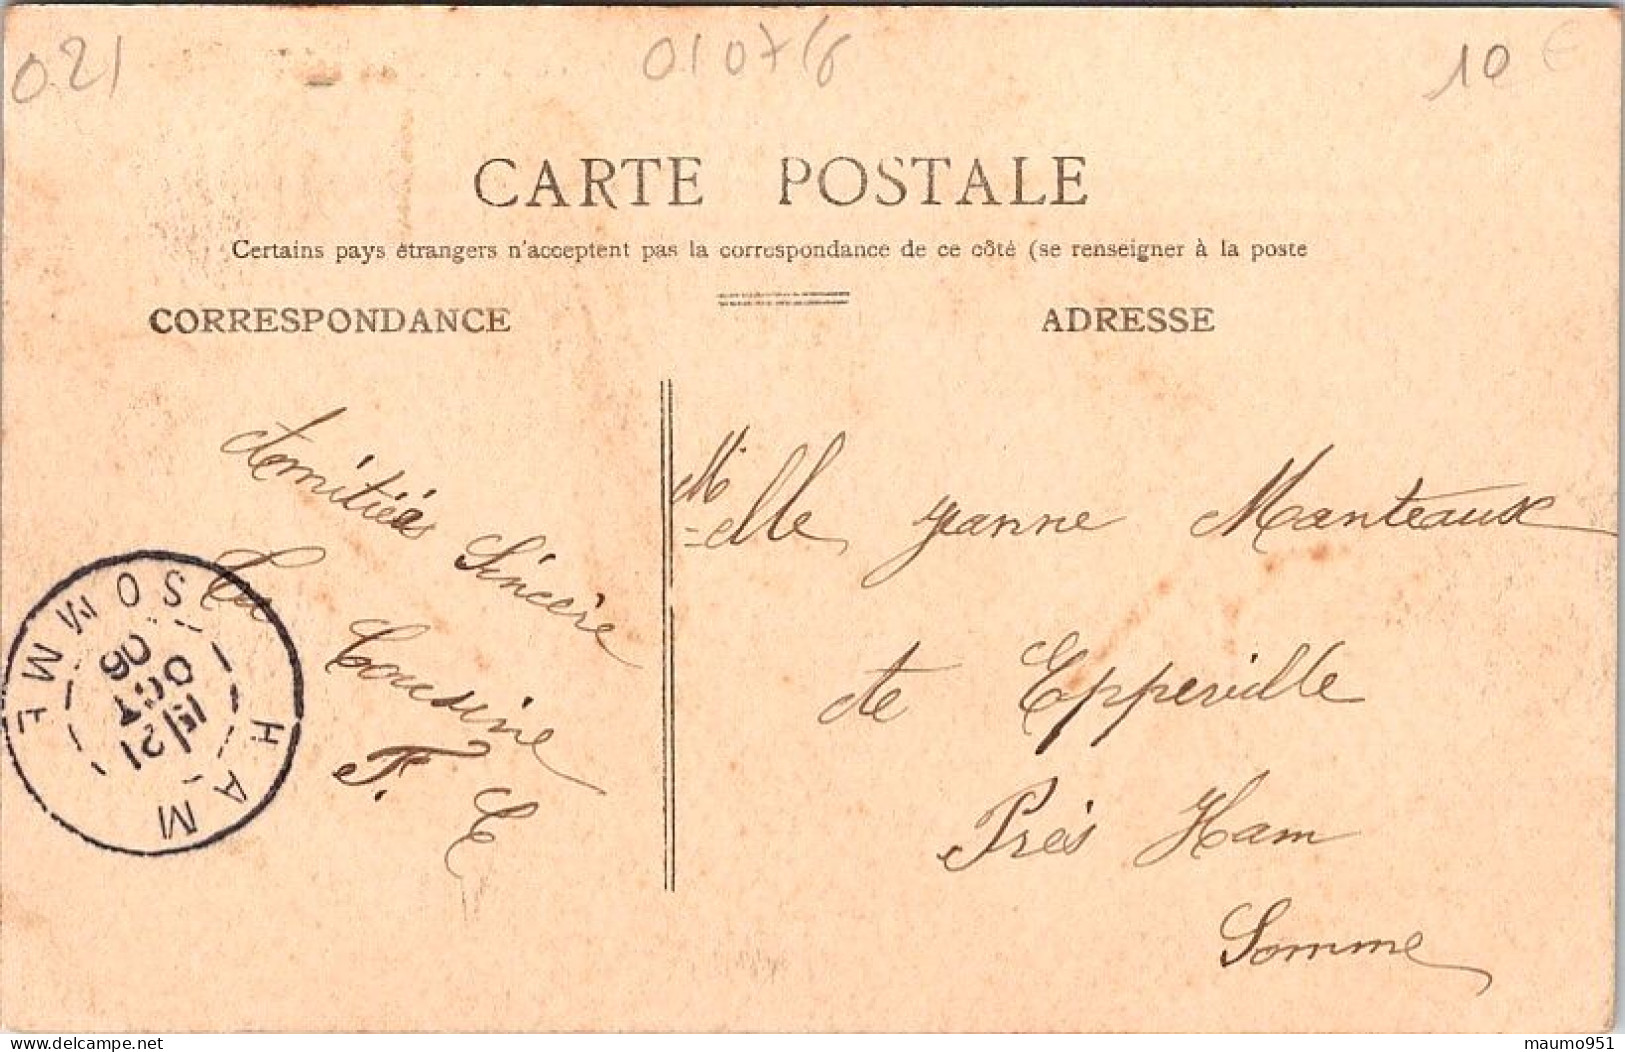 0.21
010716
10 €
CARTE POSTALE
Certains pays étrangers n'acceptent pas la correspondance de ce côté (se renseigner à la poste
CORRESPONDANCE
ADRESSE
Amitiés Sincère
Ta Cousine
F. C
Melle Jeanne Manteaux
de Eppeville
Près Ham
Somme
HAM
SOMME
21
OCT
06
delcampe.net
maumo951